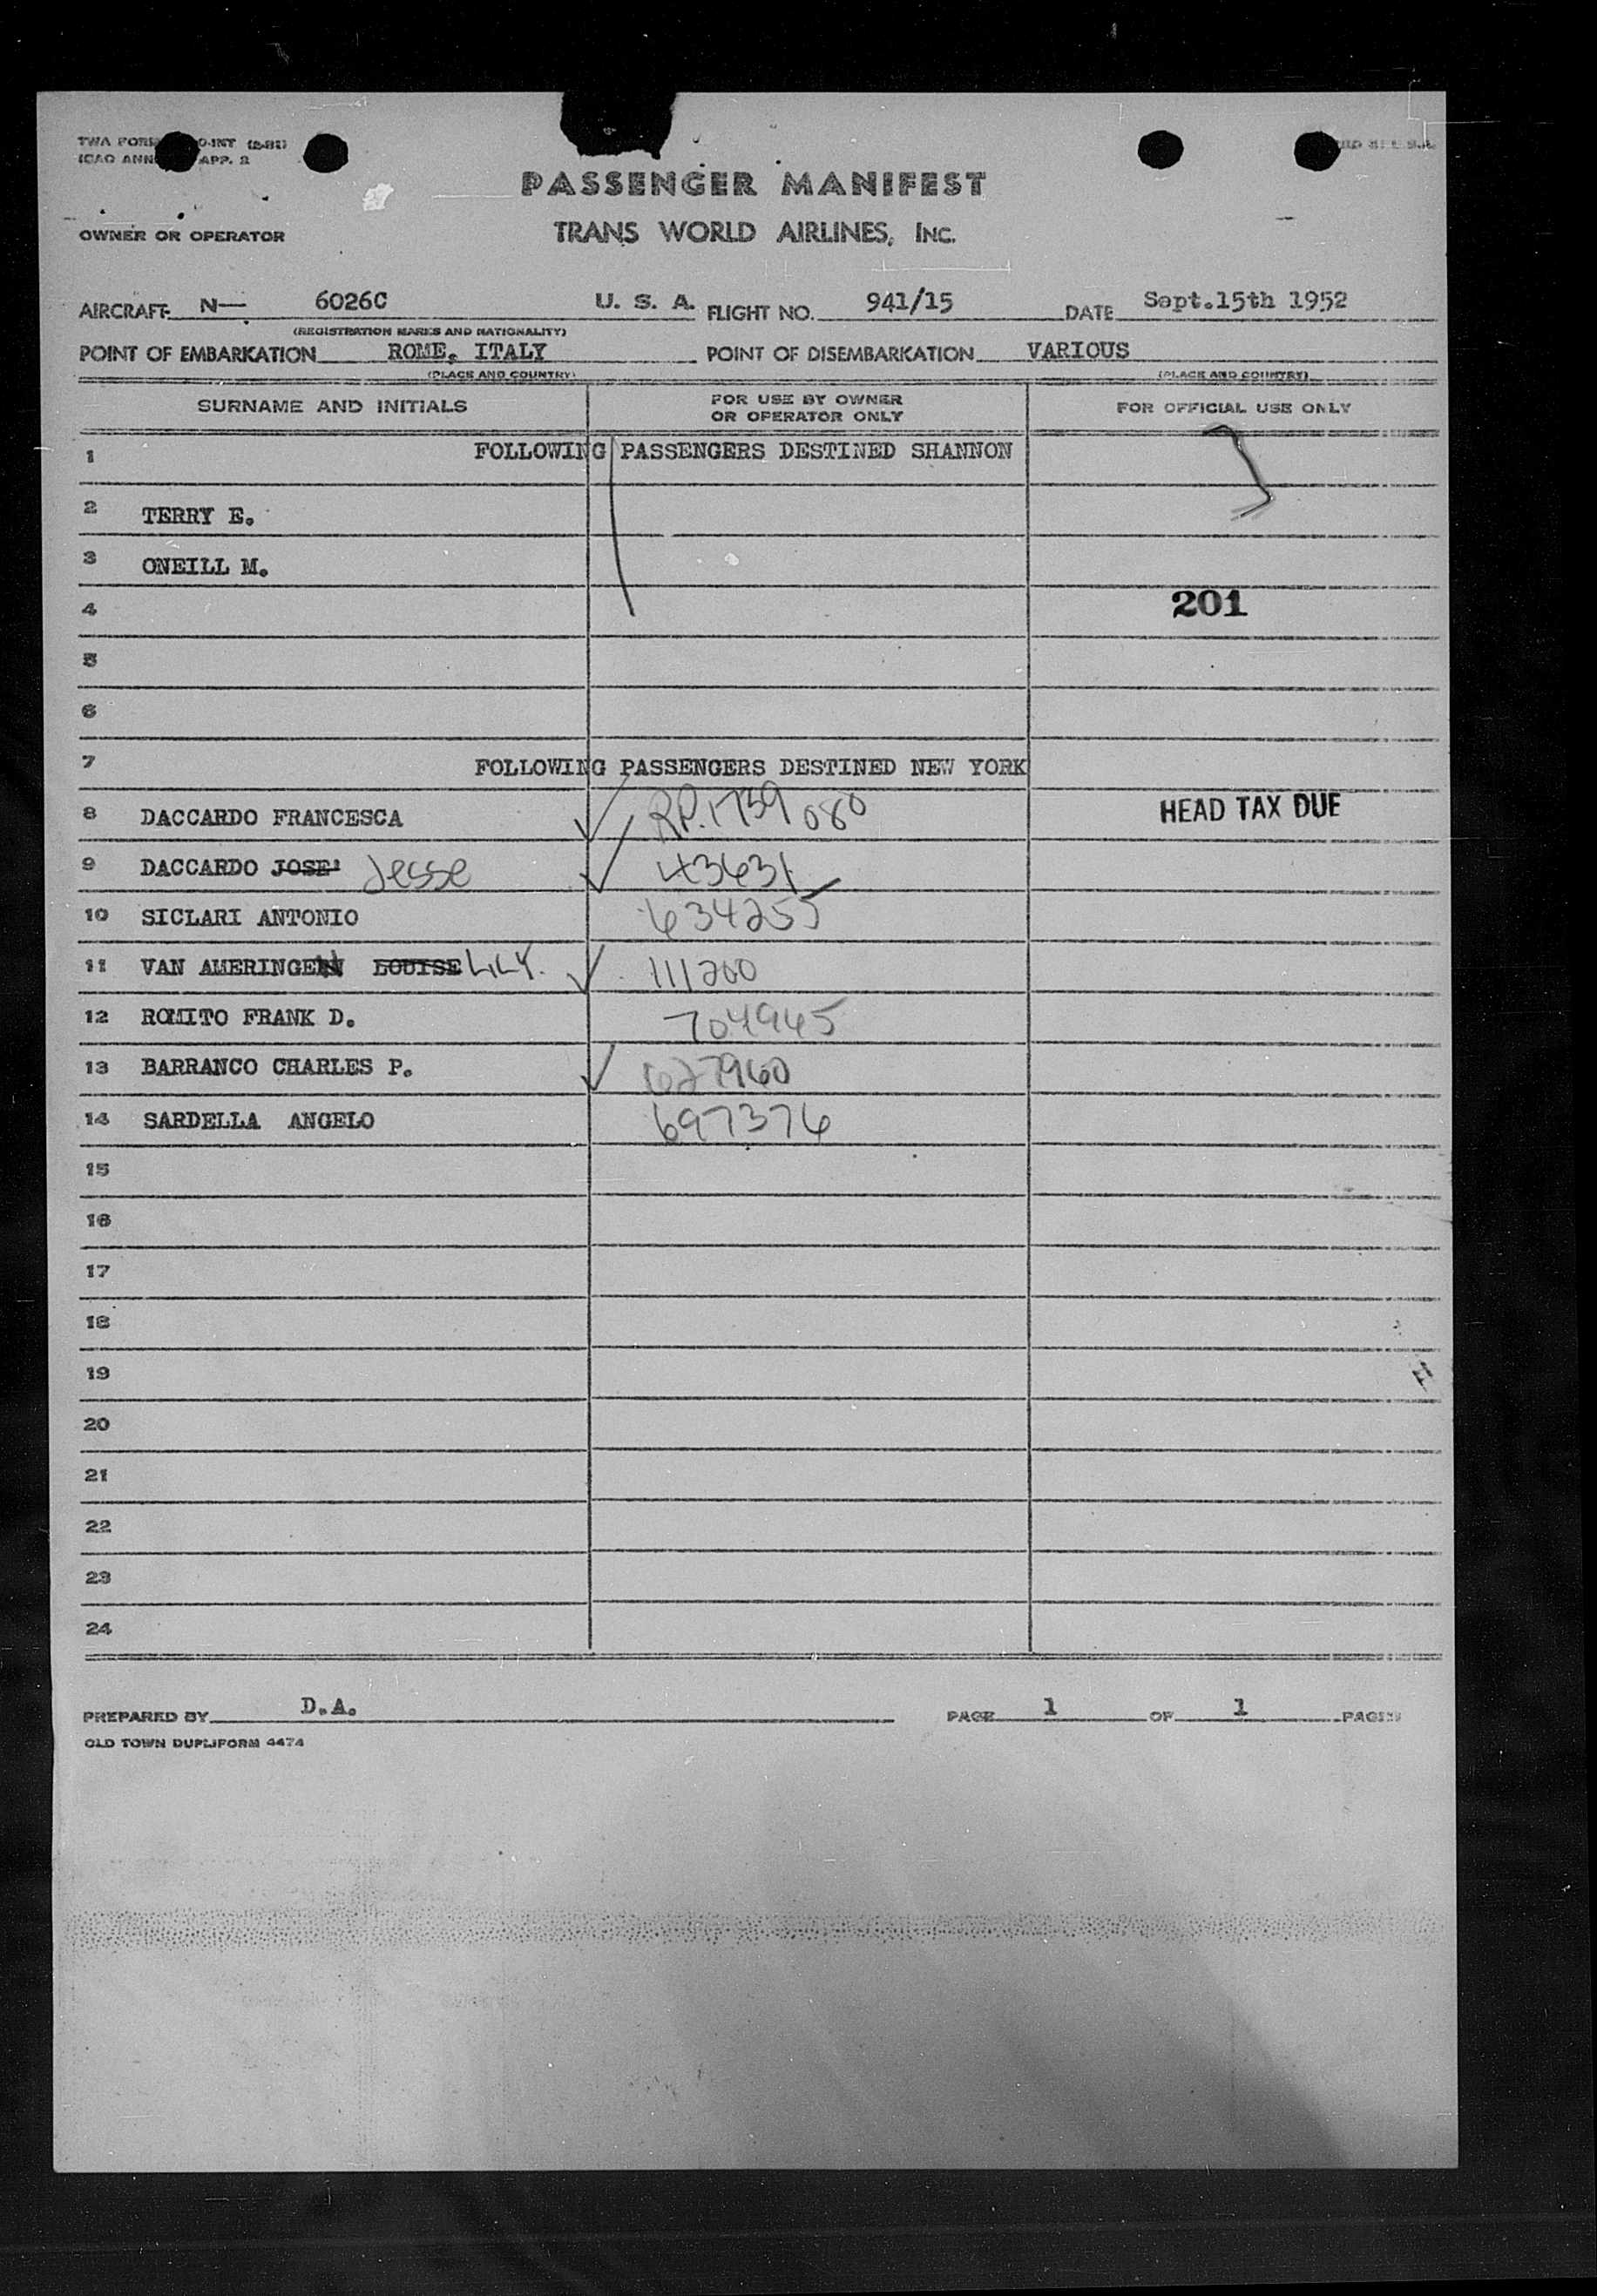 PASSENGER MANIFEST
TRANS WORLD AIRLINES, INC.
TWA FORM
ICAO ANN APP. 2
OWNER OR OPERATOR
AIRCRAFT N— 6026C U. S. A. FLIGHT NO. 941/15 DATE Sept.15th 1952
(REGISTRATION MARKS AND NATIONALITY)
POINT OF EMBARKATION ROME, ITALY POINT OF DISEMBARKATION VARIOUS
(PLACE AND COUNTRY) (PLACE AND COUNTRY)
SURNAME AND INITIALS FOR USE BY OWNER OR OPERATOR ONLY FOR OFFICIAL USE ONLY
1 FOLLOWING PASSENGERS DESTINED SHANNON
2 TERRY E.
3 ONEILL M.
4 201
5
6
7 FOLLOWING PASSENGERS DESTINED NEW YORK
8 DACCARDO FRANCESCA RP.1739080 HEAD TAX DUE
9 DACCARDO JOSE' Jesse 43631
10 SICLARI ANTONIO 634255
11 VAN AMERINGEN LOUISE LILY. 111200
12 ROMITO FRANK D. 704945
13 BARRANCO CHARLES P. 627960
14 SARDELLA ANGELO 697376
15
16
17
18
19
20
21
22
23
24
PREPARED BY D.A. PAGE 1 OF 1 PAGES
OLD TOWN DUPLIFORM 4474